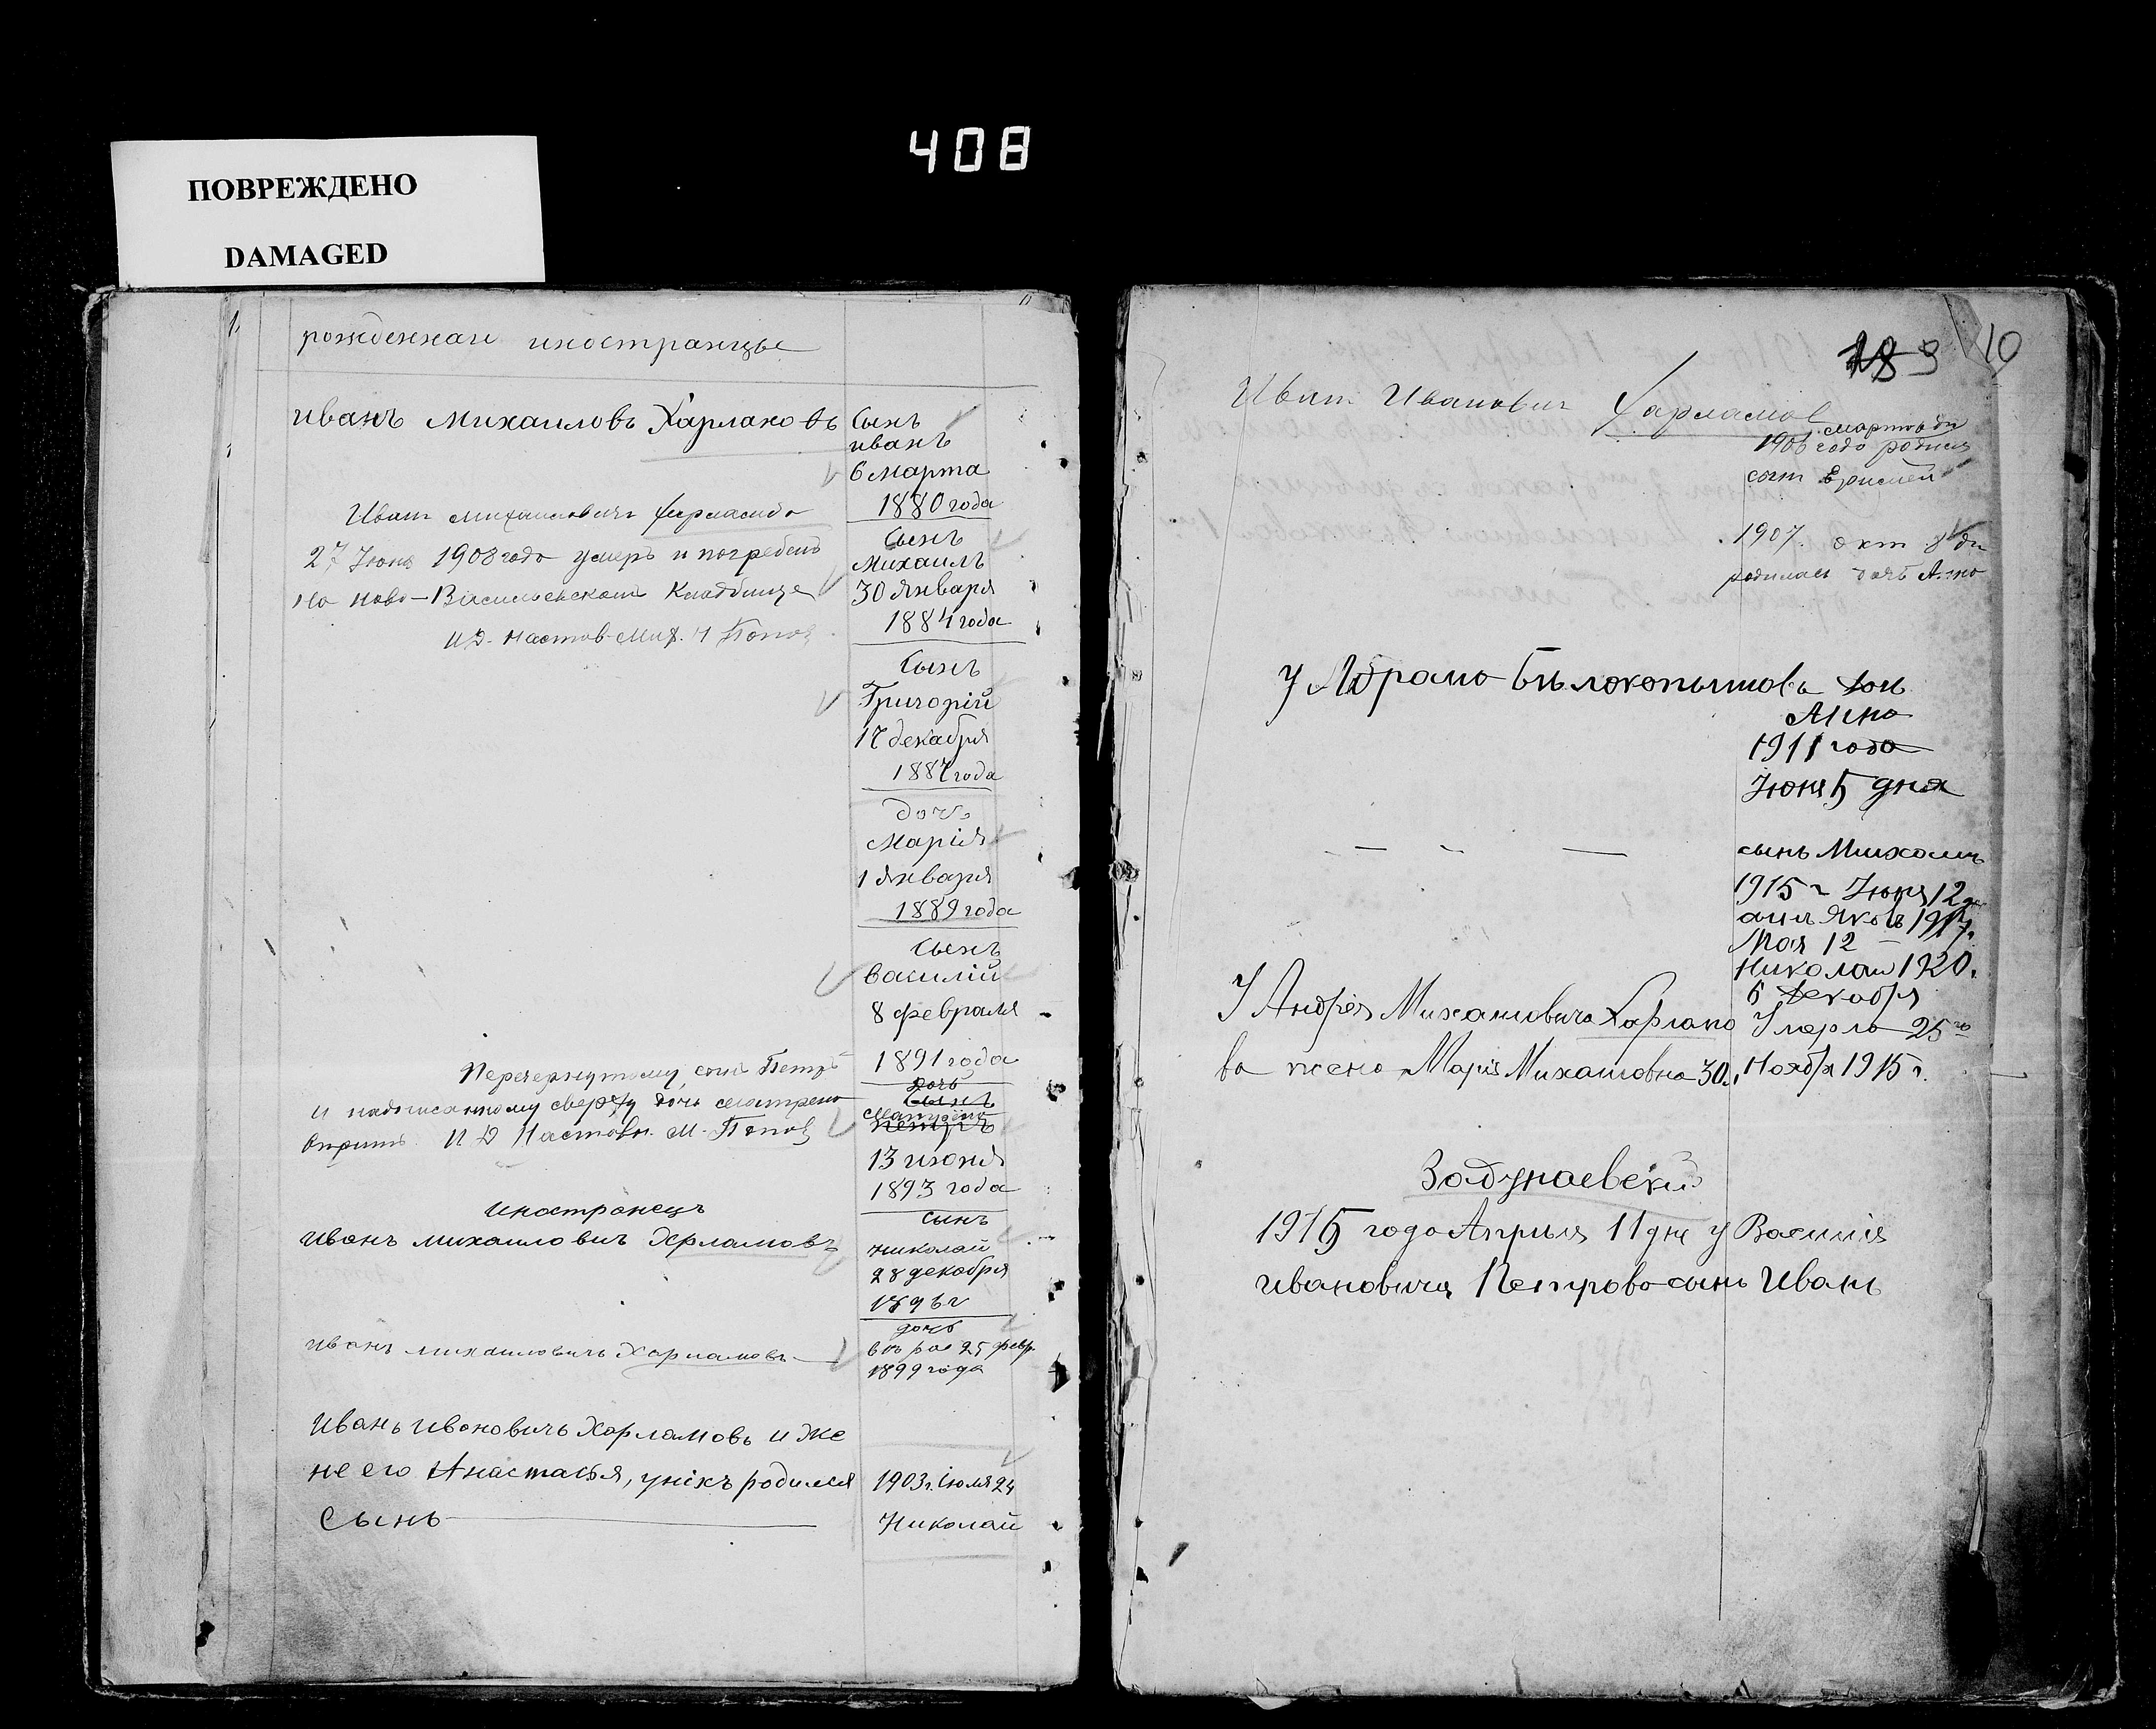 ПОВРЕЖДЕНО
DAMAGED
408
рожденнаи иностранцы
иванъ михаиловъ Харламовъ
Сынъ
иванъ
6 марта
1880 года
Иванъ михаиловичъ Харламовъ
27 Июня 1908 года умеръ и погребенъ
на ново-Васильевскомъ Кладбище
И.Д. Настов. Мих. Н Попов
Сынъ
Михаилъ
30 Января
1884 года
Сынъ
Григорій
17 декабря
1887 года
дочь
Марія
1 Января
1889 года
Сынъ
василій
8 февраля
1891 года
Перечеркнутому сынъ Петръ
и надписанному сверху дочь матрена
верить И Д Настовн. М. Попов
Дочь
Сынъ
Матрена
Петръ
13 июня
1893 года
иностранецъ
иванъ михаиловичъ Харламовъ
сынъ
николай
28 декабря
1896 г
иванъ михаиловичъ Харламовъ
дочь
25 февр.
1899 года
Иванъ Ивановичъ Харламовъ и же
не его Анастасья, унихъ родился
сынъ
1903 г. Июля 24
Николай
10
Иван Иванович Харламов
1906 года родися
сын
1907. окт 8 дн
родилась дочь Анна
У Абрама Бѣлокопытова дочь
Анна
1911 года
Июня 5 дня
сынъ Михаилъ
1915 г Июня 12
Яковъ 1917.
Мая 12
Николай 1920.
6 декабря
У Андрея Михаиловича Харламо
ва жена Марія Михаиловна 30.
Умерла 25го
Ноября 1915 г.
Задунаевски
1915 года Апрыля 11 дня у Василія
ивановича Петрова сынъ Иванъ